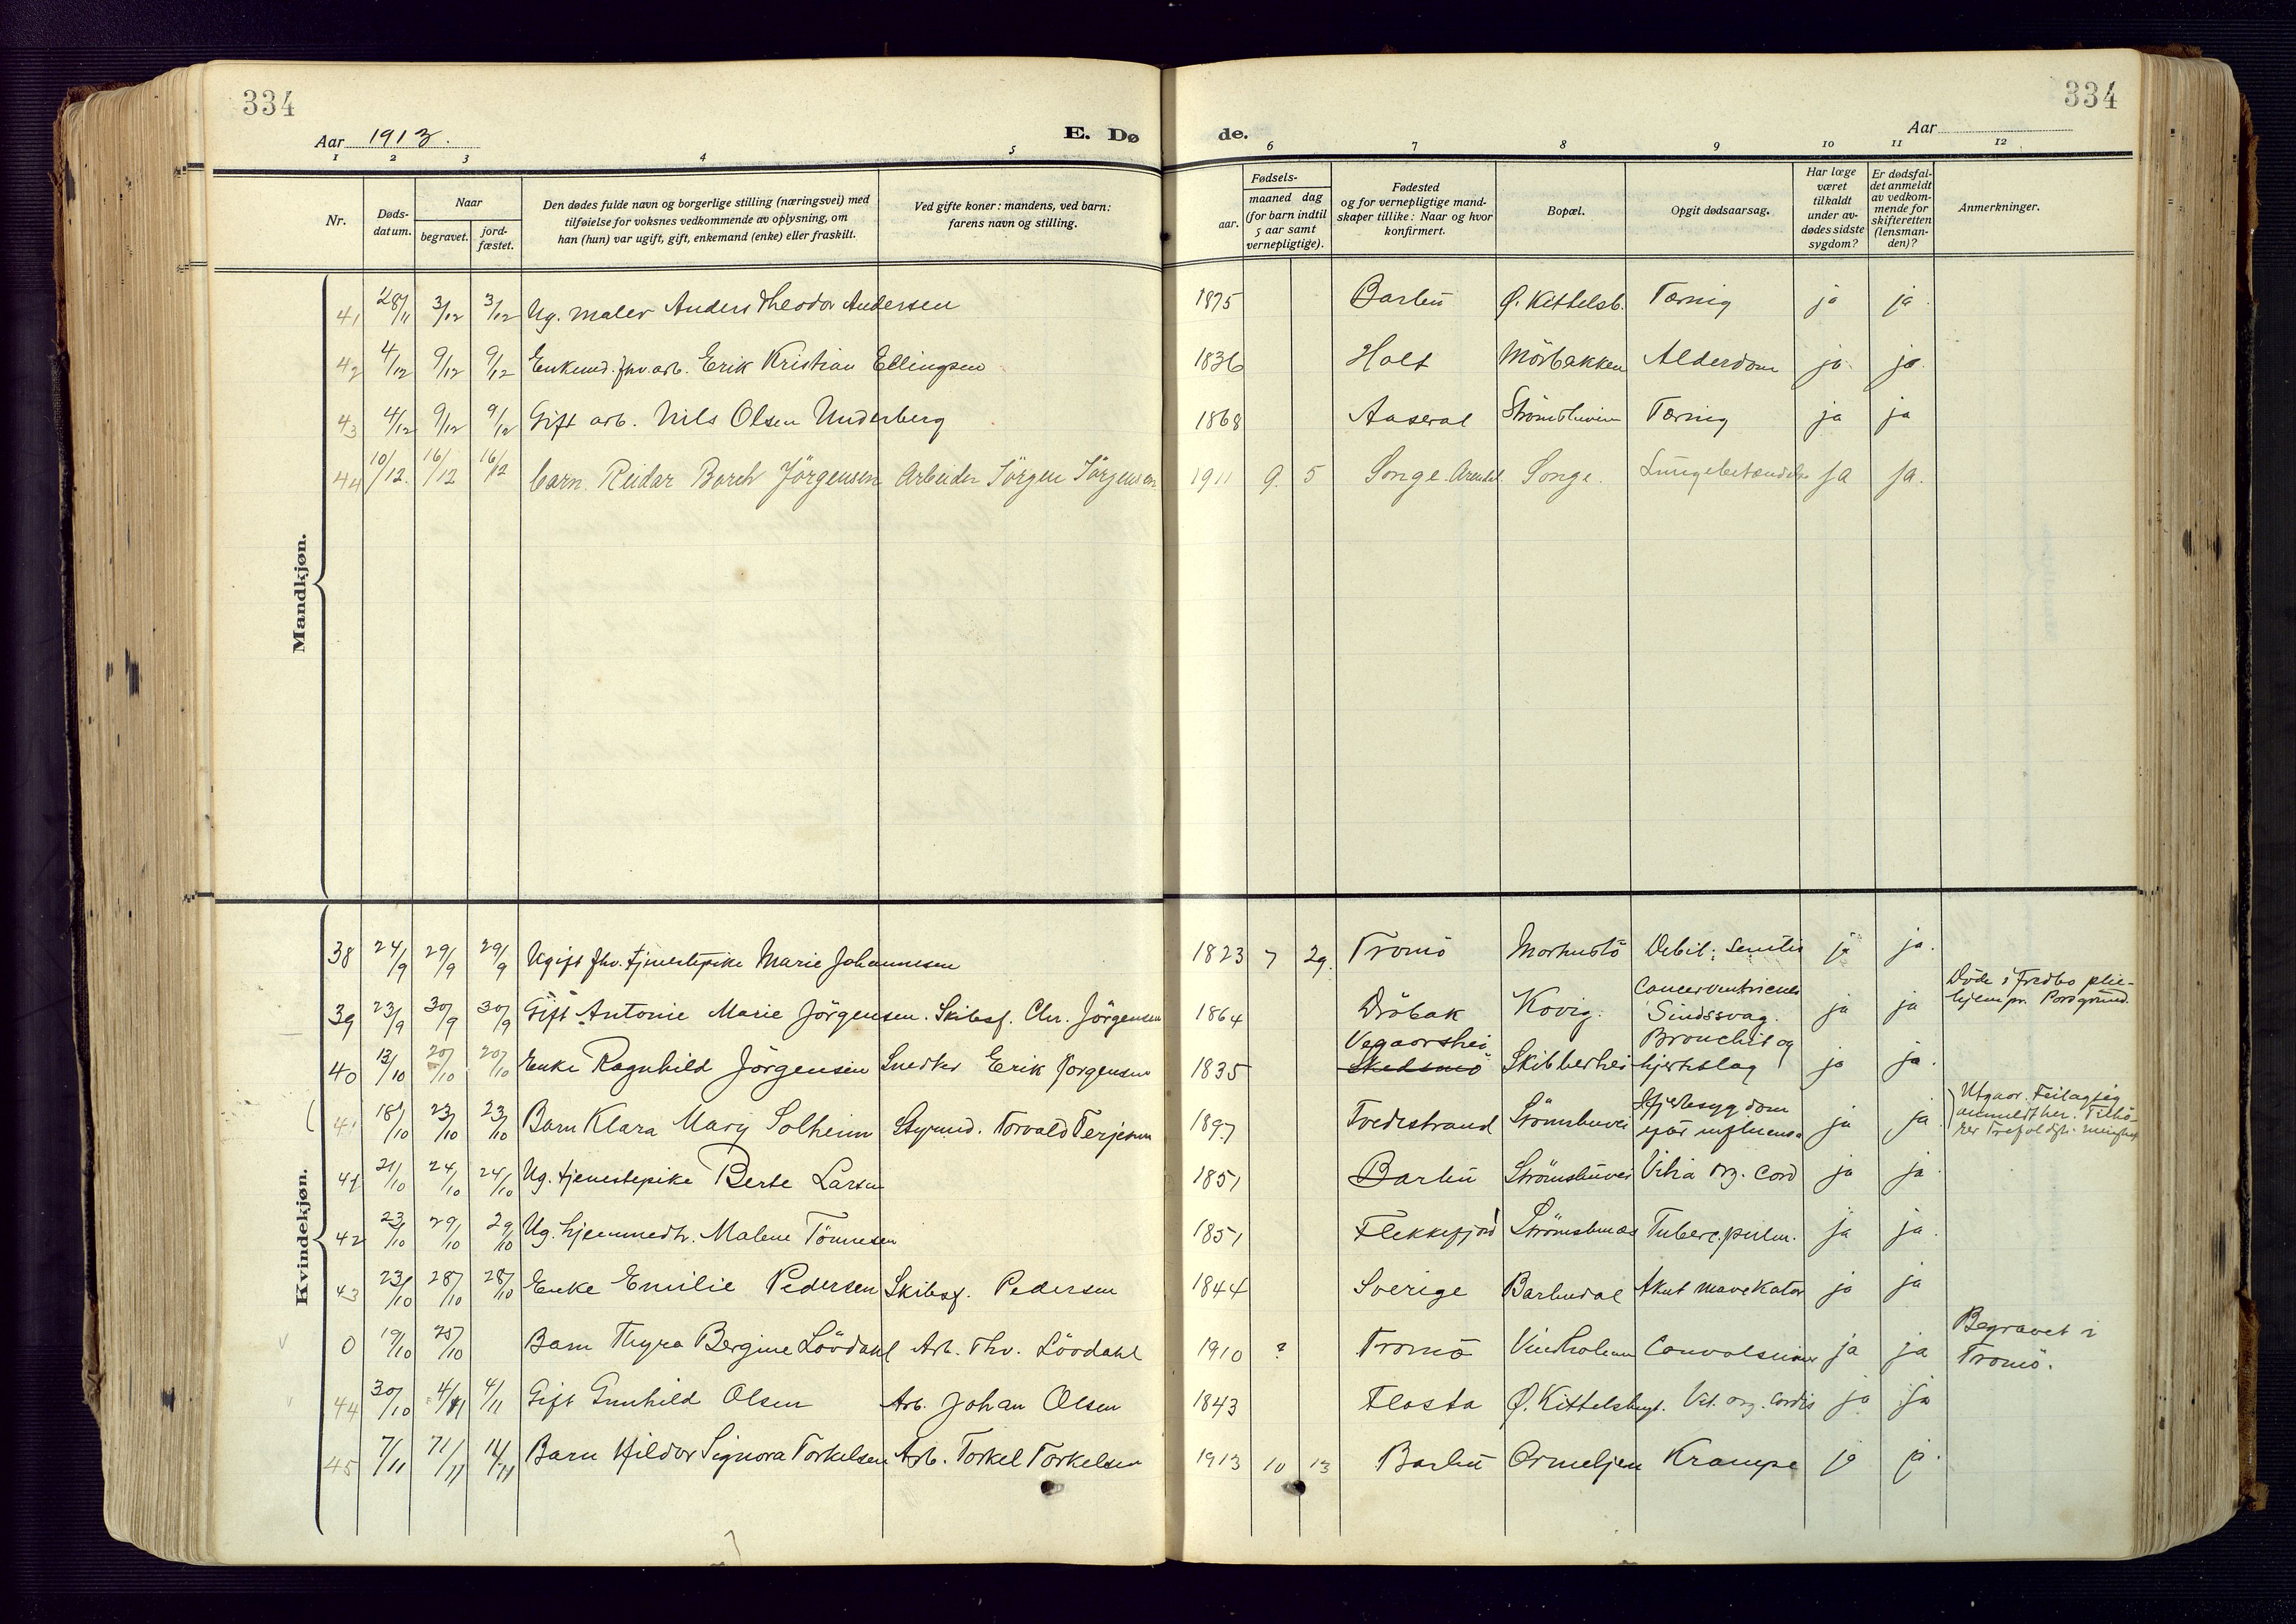 334
334
Aar 1913.
E. Dø
de.
Aar
1 2 3 4 5 6 7 8 9 10 11 12
Nr.
Døds-
datum.
Naar
begravet.
jord-
fæstet.
Den dødes fulde navn og borgerlige stilling (næringsvei) med
tilføielse for voksnes vedkommende av oplysning, om
han (hun) var ugift, gift, enkemand (enke) eller fraskilt.
Ved gifte koner: mandens, ved barn:
farens navn og stilling.
Fødsels-
aar.
maaned dag
(for barn indtil
5 aar samt
vernepligtige).
Fødested
og for vernepligtige mand-
skaper tillike: Naar og hvor
konfirmert.
Bopæl.
Opgit dødsaarsag.
Har læge
været
tilkaldt
under av-
dødes sidste
sygdom?
Er dødsfal-
det anmeldt
av vedkom-
mende for
skifteretten
(lensman-
den)?
Anmerkninger.
Mandkjøn.
41 28/11 3/12 3/12 Ug. maler Anders Theodor Andersen 1875 Barbu Ø. Kittelsb. Tæring ja ja
42 4/12 9/12 9/12 Enkemd. fhv. arb. Erik Kristian Ellingsen 1836 Holt Mörbakken Alderdom ja ja
43 4/12 9/12 9/12 Gift arb. Nils Olsen Underberg 1868 Aaseral Strömsbuvein Tæring ja ja
44 10/12 16/12 16/12 barn Reidar Borch Jörgensen Arbeider Jörgen Jörgensen 1911 9. 5 Songe. Arendal Songe. Lungebetændelse ja ja.
Kvindekjøn.
38 24/9 29/9 29/9 Ugift fhv. tjenestepike Marie Johannesen 1823 7 29. Tromö Debil. senilis ja ja.
39 23/9 30/9 30/9 Gift Antonie Marie Jörgensen. Skibsf. Chr. Jörgensen 1864 Dröbak Kovig. Cancer ventriculi
Sindssvag. ja ja Döde i Fredbo pleie-
hjem pr. Porsgrund.
40 13/10 20/10 20/10 Enke Ragnhild Jörgensen Snedker Erik Jörgensen 1835 Vegaarshei
Skedsmo Skibberhei Bronchit og
hjerteslag ja ja.
41 18/10 23/10 23/10 Barn Klara Mary Solheim Styrmd. Torvald Terjesen 1897 Tvedestrand Strömsbuvei Hjertesygdom
efter influensa ja ja Utgaar. Feilagtig
anmeldt her. Tilhö-
rer Trefoldigh. menighet
41 21/10 24/10 24/10 Ug. tjenestepike Berte Larsen 1851 Barbu Strömsbuvei Vitia org. cord ja ja.
42 23/10 29/10 29/10 Ug. hjemmedtr. Malene Tönnesen 1851 Flekkefjord Strömsbuaas Tuberc. pulm. ja ja.
43 23/10 28/10 28/10 Enke Emilie Pedersen Skibsf. Pedersen 1844 Sverige Barbudal Akut mavekatar ja ja
0 19/10 25/10 Barn Thyra Bergine Lövdahl Arb. Thv. Lövdahl 1910 ? Tromö Vindholmen Convulsioner ja ja Begravet i
Tromö.
44 30/10 4/11 4/11 Gift Gunhild Olsen Arb. Johan Olsen 1843 Flosta Ø. Kittelsbugt. Vit. org. cordis ja ja
45 7/11 11/11 14/11 Barn Hildor Signora Torkelsen Arb. Torkel Torkelsen 1913 10 13 Barbu Ormeljen Krampe ja ja.